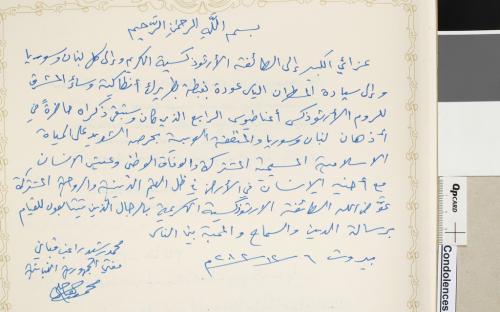 بسم الله الرحمن الرحيم
عزائي الكبير إلى الطائفة الأرثوذكسية الكريمة وإلى كل لبنان وسوريا
وإلى سيادة المطران الياس عودة بغبطة بطريرك أنطاكية وسائر المشرق
للروم الأرثوذكس أغناطيوس الرابع الذي كان وستبقى ذكراه حاضرة في
أذهان لبنان وسوريا والمنطقة العربية بحرصه الشديد على الحياة
الاسلامية المسيحية المشتركة والوفاق الوطني وعيش الانسان
مع أخيه الانسان في الأرض في ظل القيم الدينية والروحية المشتركة
عوّض الله الطائفة الارثوذكسية الكريمة بالرجال الذين يتتابعون للقيام
برسالة الدين والسماح والمحبة بين الناس
محمد رشيد راغب قباني
مفتي الجمهورية اللبنانية
بيروت ٦ /١٢/ ٢٠١٢م
QPCARD
Condolences